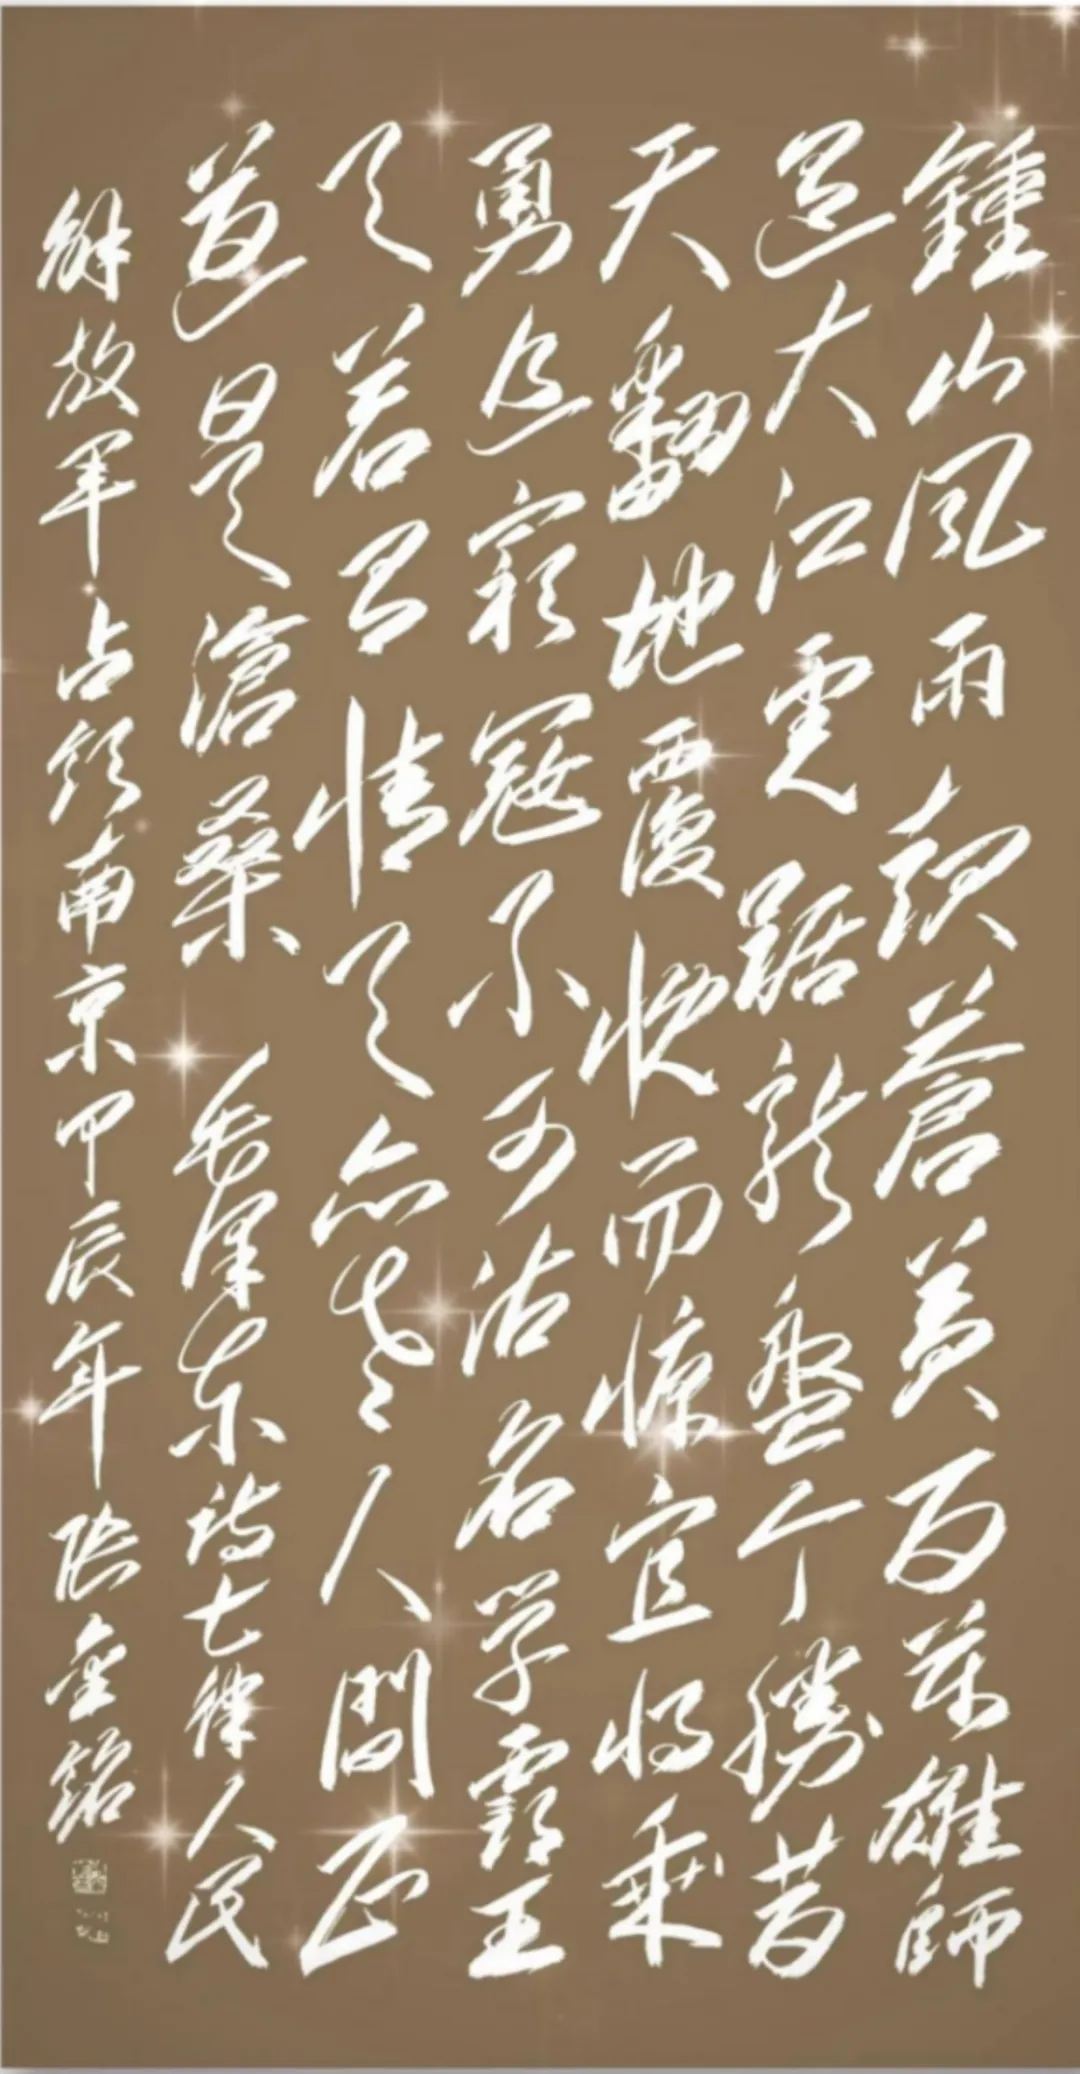 鍾山風雨起蒼黃百萬雄師
過大江虎踞龍盤今勝昔
天翻地覆慨而慷宜將剩
勇追窮寇不可沽名學霸王
天若有情天亦老人間正
道是滄桑 毛澤東詩七律人民
解放軍占領南京甲辰年金銘